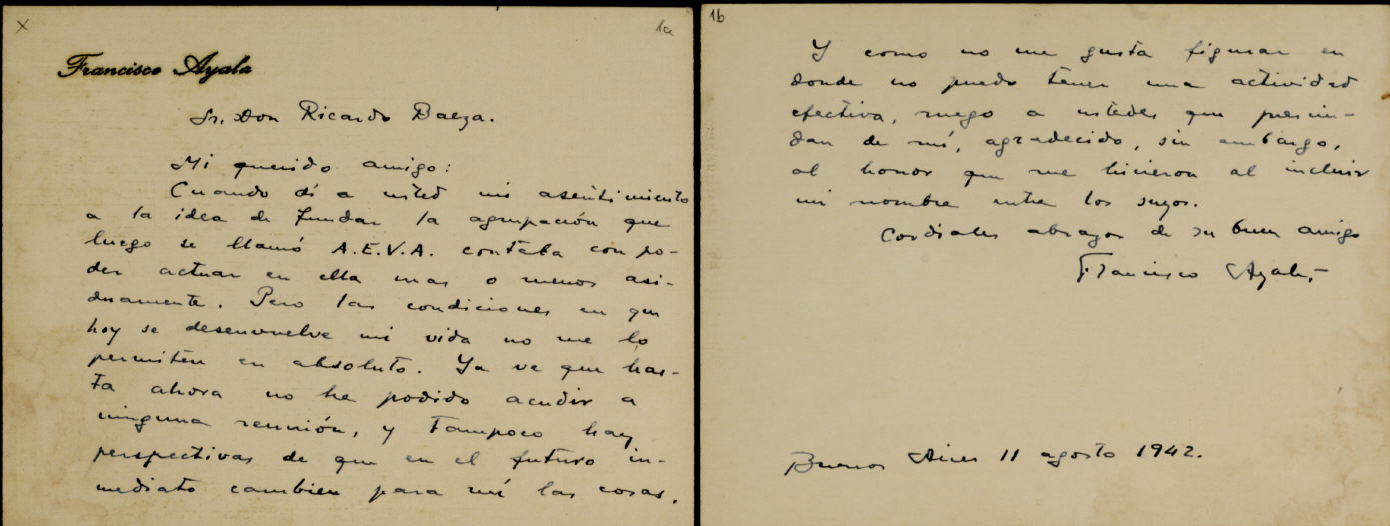 X
1a
Francisco Ayala
Sr. Don Ricardo Baeza.
Mi querido amigo:
Cuando dí a usted mi asentimiento
a la idea de fundar la agrupación que
luego se llamó A.E.V.A. contaba con po-
der actuar en ella mas o menos asi-
duamente. Pero las condiciones en que
hoy se desenvuelve mi vida no me lo
permiten en absoluto. Ya ve que has-
ta ahora no he podido acudir a
ninguna reunión, y tampoco hay
perspectivas de que en el futuro in-
mediato cambien para mí las cosas.
1b
Y como no me gusta figurar en
donde no puedo tener una actividad
efectiva, ruego a ustedes que prescin-
dan de mí, agradecido, sin embargo,
al honor que me hicieron al incluir
mi nombre entre los suyos.
Cordiales abrazos de su buen amigo
Francisco Ayala
Buenos Aires 11 agosto 1942.